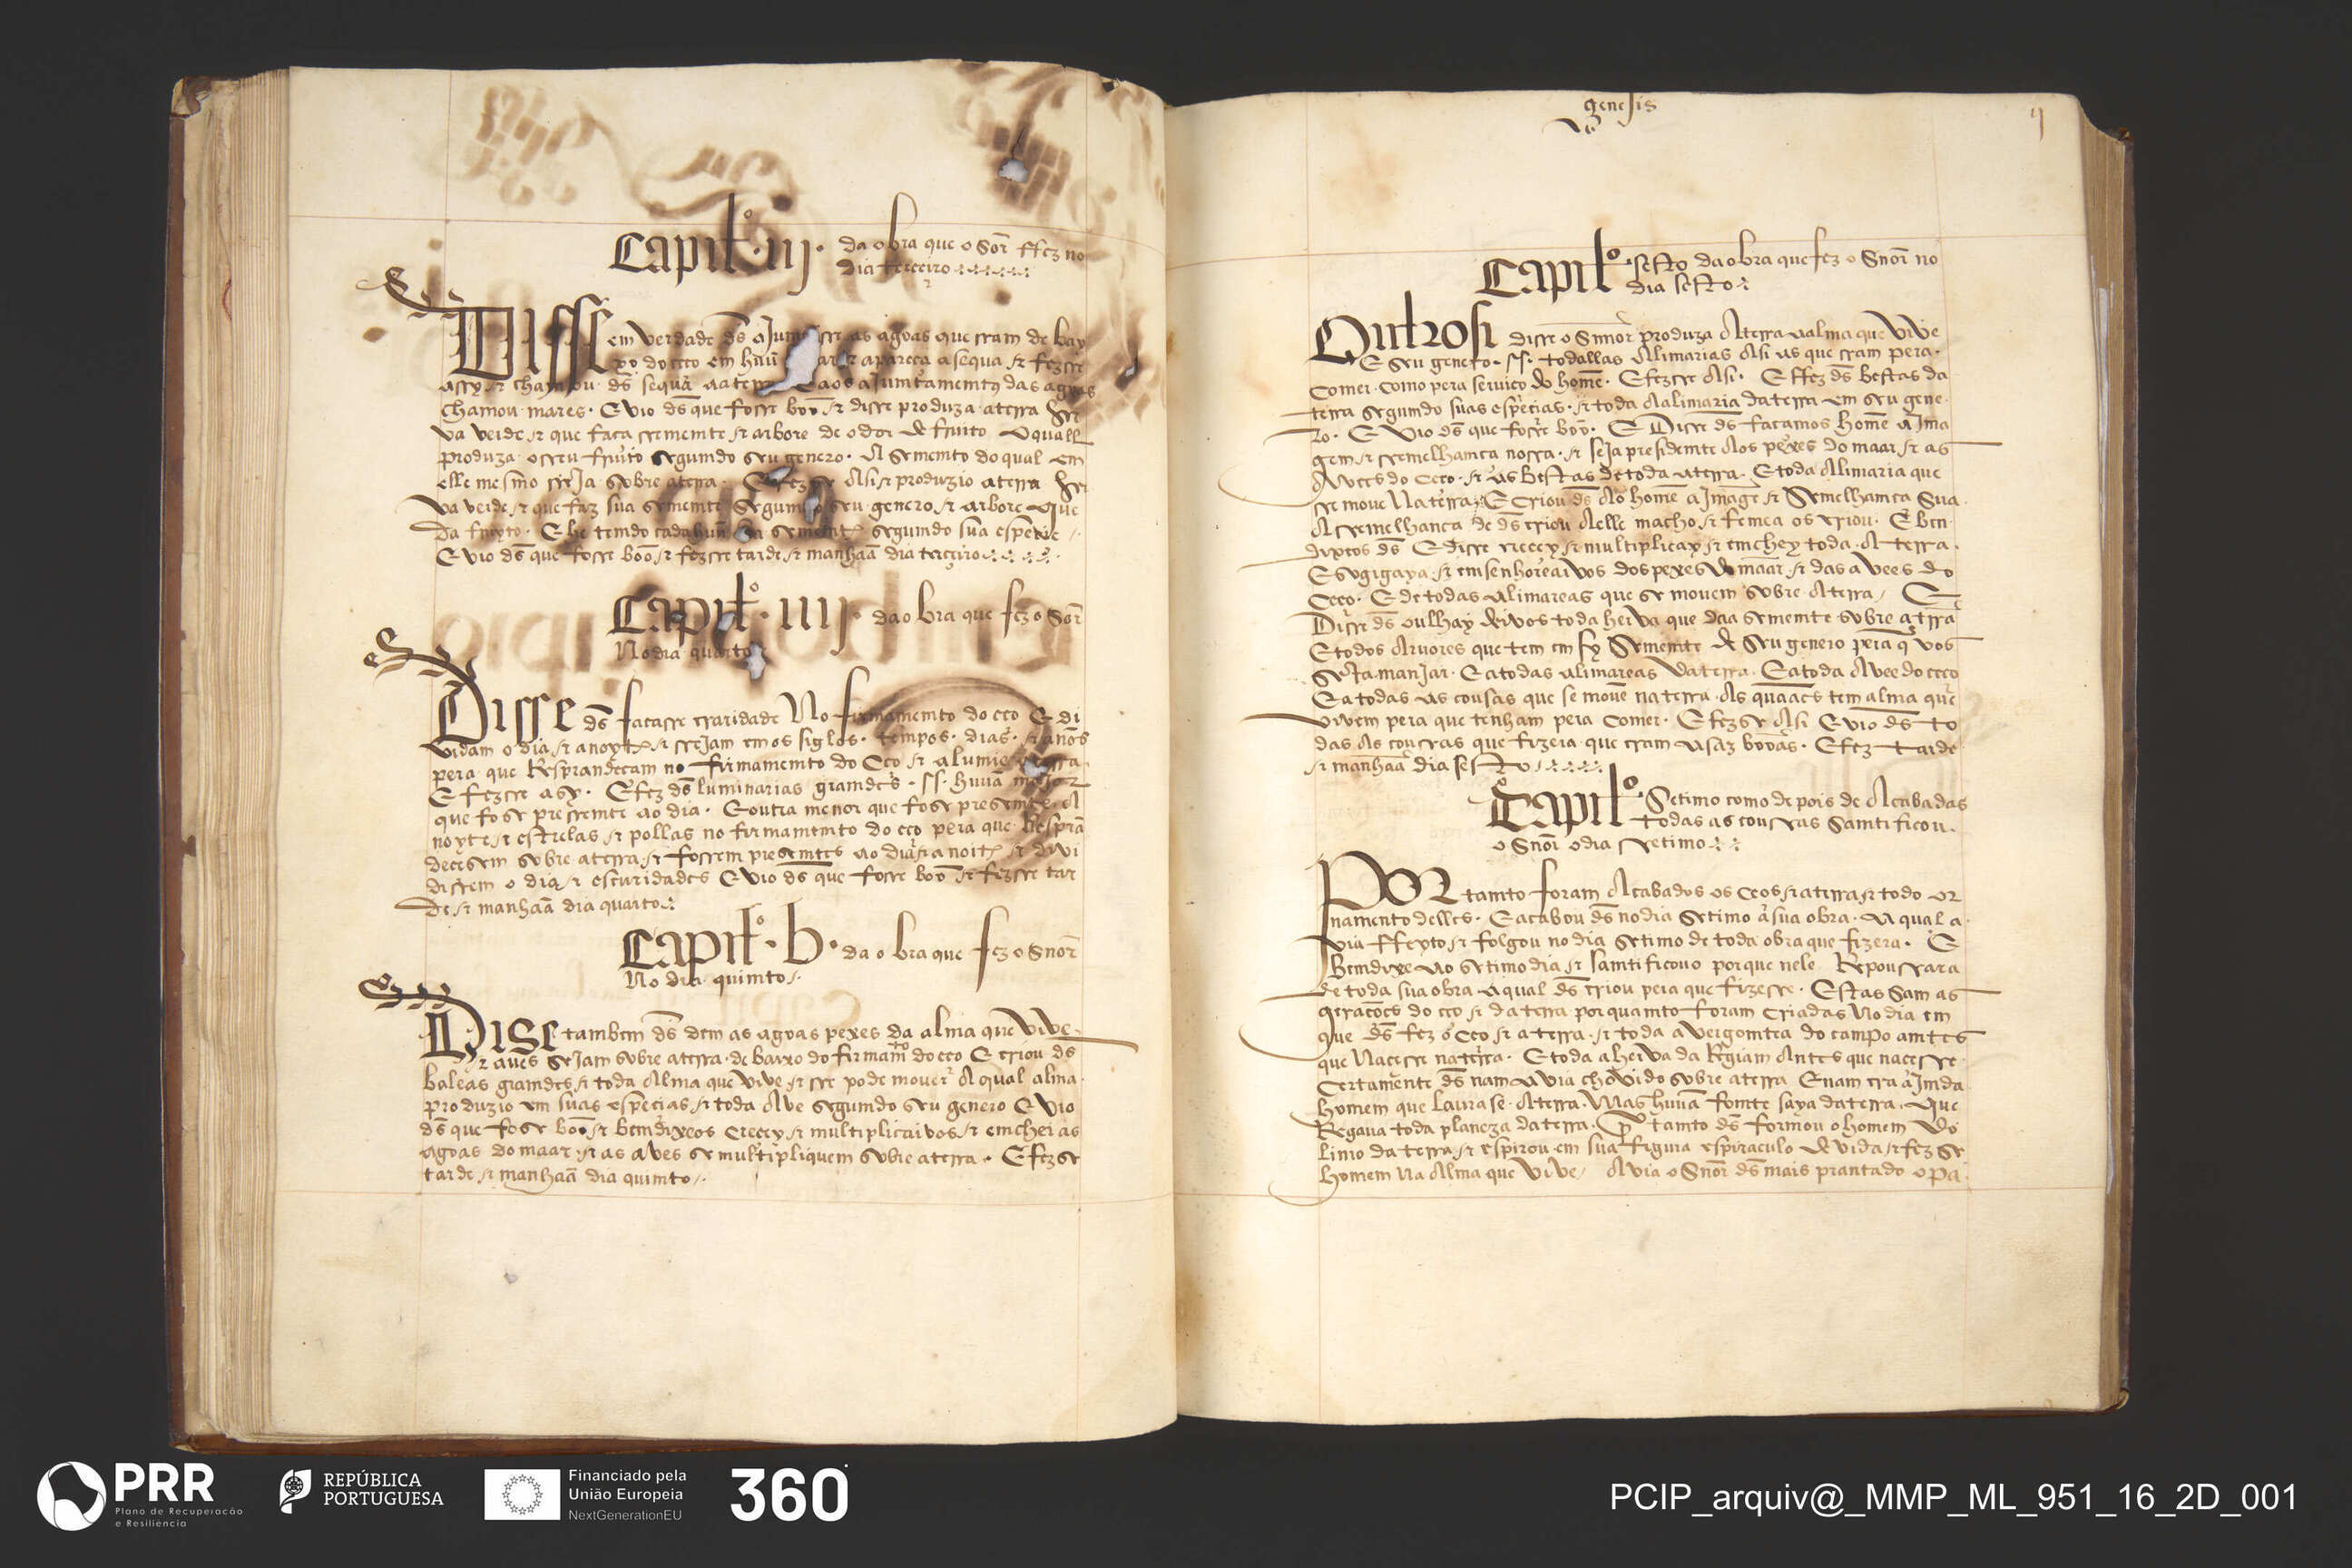 Capitlo. iij. da obra que o Sor ffez no
dia terceiro
Disse em verdade ds ajum sse as agoas que eram de bay
xo do ceo em huũ ar apareça a sequa e fezsse
assy e chamou ds sequa aa terra aos ajumtamemtos das agoas
chamou mares. E vio ds que fosse boo e disse produza a terra her
va verde e que faca semente e arbore de odor de fruito o quall
produza o seu fruito segumdo seu genero. A semente do qual em
elle mesmo seja sobre a terra. E fezse Asi e produzio a terra her
va verde e que faz sua semente segumdo seu genero e arbore que
da fruyto. E he temdo cada huũ semente segumdo sua espeçie
E vio ds que fosse boo e fezsse tarde e manhaã dia terceiro
Capitlo. iiij. da obra que fez o Sor
No dia quarto
Disse ds facasse craridade No firmamemto do ceo E di
vidam o dia e a noyte e sejam em os siglos. tempos. dias. e anos
pera que Resprandeçam no firmamemto do Ceo e alumie terra.
E fezsse asy. E fez ds luminarias gramdes. ss. huuã maior
que fose presemte ao dia. E outra menor que fose presemte. A
noyte e estrelas e pollas no firmamemto do ceo pera que Respran
decesem sobre a terra e fossem presemtes ao dia e a noite e divi
disem o dia e escuridades E vio ds que fosse boo e fezsse tar
de e manhaã dia quarto
Capitlo. b. da obra que fez o Snor
No dia quimto
Dise tambem ds dem as agoas pexes da alma que vive.
e aues sejam sobre a terra. de baixo do firmamto do ceo E criou ds
baleas gramdes e toda Alma que vive e sse pode mouer A qual alma.
produzio em suas espeçias e toda Ave segumdo seu genero E vio
ds que fose boo e bemdixeos Creçey e multiplicaivos e emchei as
agoas do maar. e as aves se multipliquem sobre a terra. E fezse
tarde e manhaã dia quimto
genesis
ij
Capitlo. sesto da obra que fez o Snor no
dia sesto
Outrosi disse o Snnor produza A terra a alma que vive
E seu genero. ss. todallas Alimarias Asi as que eram pera.
Comer. Como pera serviço do home. E fezsse Asi. E ffez ds bestas da
terra segumdo suas espeçias. e toda Aalimaria da terra em seu gene
ro. E vio ds que fosse boo. E Disse ds façamos home A Ima
gem e semelhamça nossa. e seja presidemte Aos pexes do maar e as
Avees do Ceo. e as bestas de toda a terra. E toda Alimaria que
sse moue Na terra. E Criou ds Ao home a Image e Semelhamça Sua
A semelhança de ds criou A elle macho e femea os criou. E ben
dixeos ds E disse creçey e multiplicay e emchey toda. A terra.
E sogigaya. e emsenhoreaivos dos pexes do maar. e das avees do
Ceeo. E de todas alimareas que se mouem sobre A terra E
Disse ds oulhay deivos toda herva que daa semente sobre a terra
E todos Aruores que tem em sy Semente de seu genero pera q vos
seja manjar. E a todas alimareas da terra. E a toda Avee do ceeo
E a todas as cousas que se moue na terra. As quaaes tem alma que
vivem pera que tenham pera Comer. E fezse Asi E vio ds to
das As coussas que fizera. que eram asaz boãs. E fez tarde
e manhaã dia sesto
Capitlo. Setimo como depois de Acabadas
todas as coussas Samtificou.
o Snor o dia setimo
Por tamto foram Acabados os Ceos e a terra e todo or
namento delles. E acabou ds no dia setimo a sua obra. A qual a.
via ffeyto e folgou no dia setimo de toda obra que fizera. E
Bemdixe ao setimo dia e samtificouo porque nele Repoussara
de toda sua obra a qual ds criou pera que fizesse. Estas Sam as
geraçoes do ceo e da terra porquamto foram Criadas No dia em
que ds fez o Ceo e a terra. e toda a vergomtea do campo amtes
que Naçesse na terra. E toda a herva da Regiam Antes que naçesse.
Certamente ds nam avia chovido sobre a terra E nam era aimda
homem que laurase. A terra. Mas huuã fomte saya da terra. Que
Regaua toda planeza da terra. Por tamto ds formou o homem do
limo da terra e espirou em sua figura espiraculo de vida e fez se
homem na Alma que vive Avia o Snor ds mais prantado o pa
PRR
Plano de Recuperação
e Resiliência
REPÚBLICA
PORTUGUESA
Financiado pela
União Europeia
NextGenerationEU
360
PCIP_arquiv@_MMP_ML_951_16_2D_001